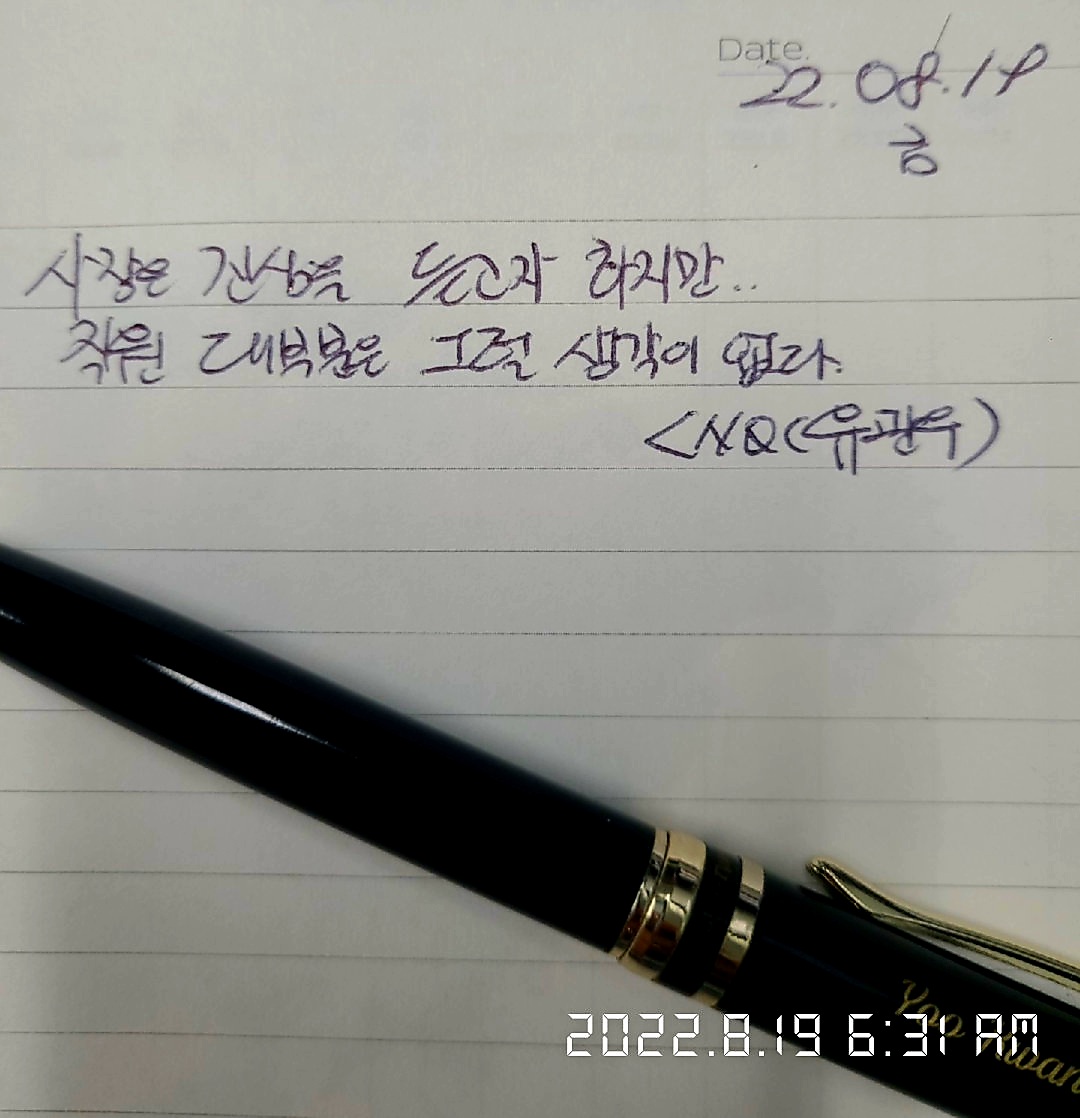 Date.
22. 08. 19
금
사장은 진심을 듣고자 하지만..
직원 대부분은 그럴 생각이 없다.
<NQ(유관우)
Yoo Kwan
2022.8.19 6:31 AM